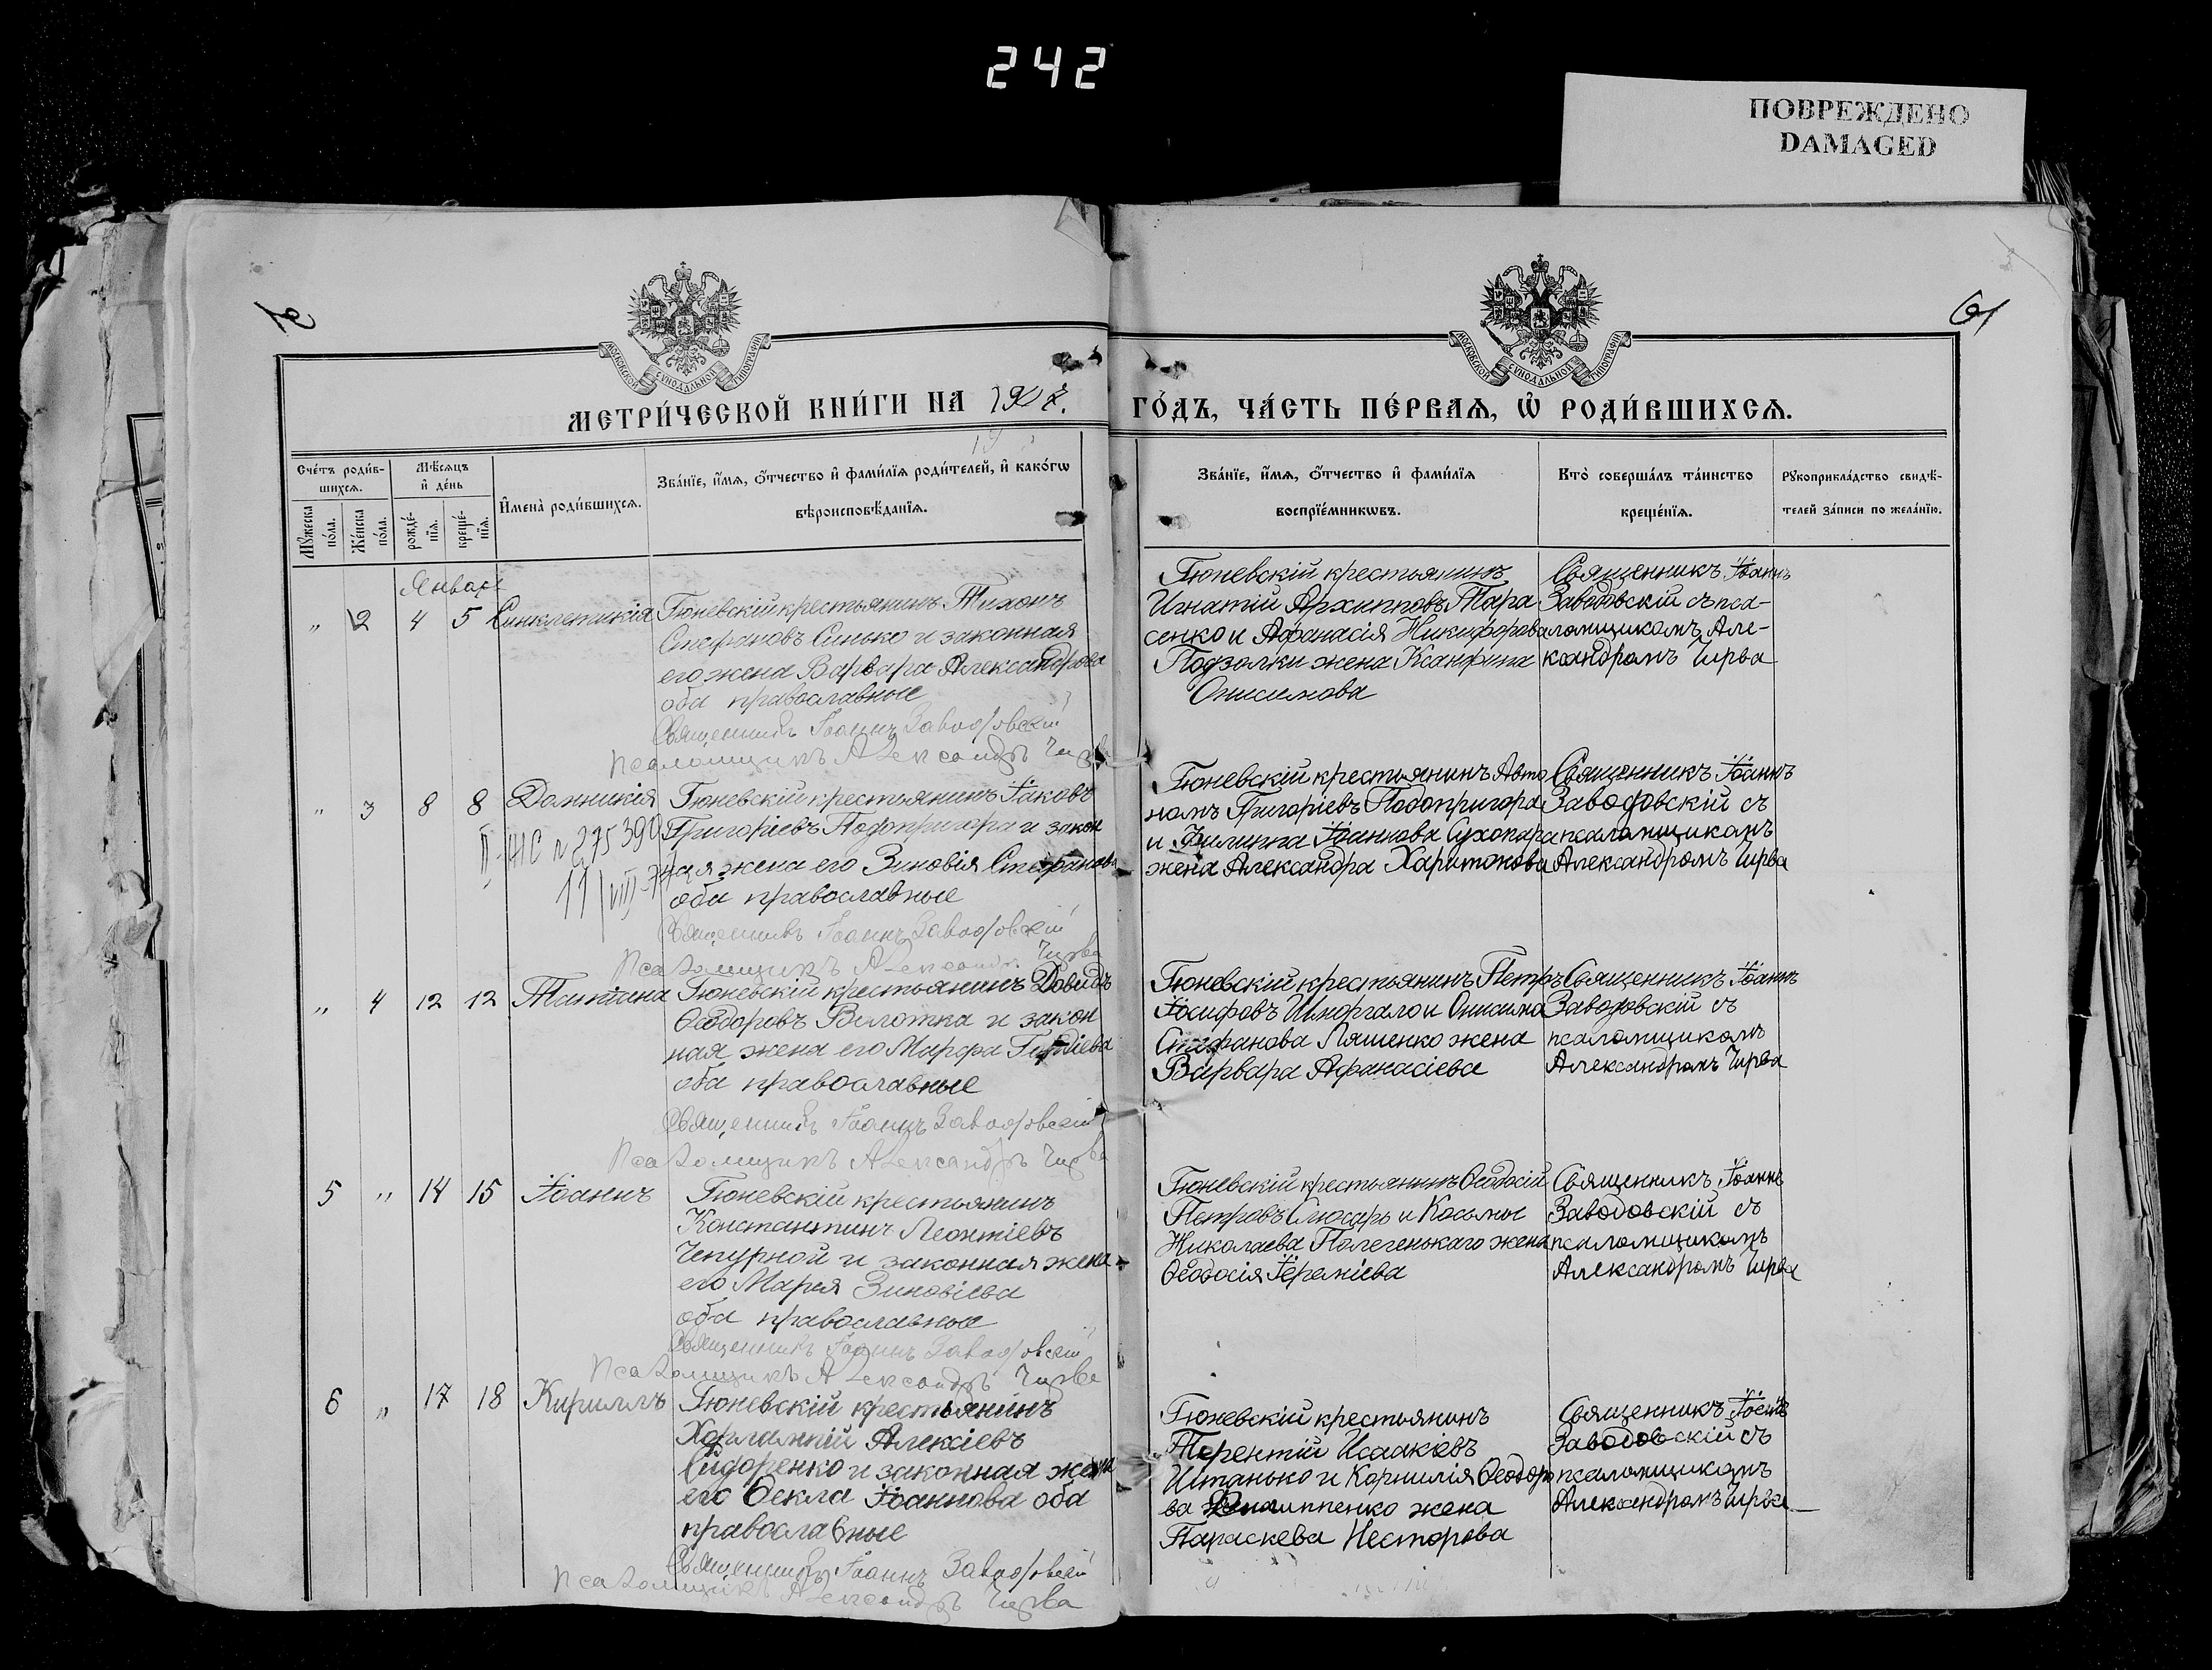 242
ПОВРЕЖДЕНО
DAMAGED
61
МОСКОВСКОЙ СѴНОДАЛЬНОЙ ТИПОГРАФІИ
МОСКОВСКОЙ СѴНОДАЛЬНОЙ ТИПОГРАФІИ
МЕТРИ́ЧЕСКОЙ КНИ́ГИ НА 1907. ГО́ДЪ, ЧА́СТЬ ПЕ́РВАЯ, Ѡ҆ РОДИ́ВШИХСЯ.
Сче́тъ роди́в-
шихся.
Мужеска по́ла.
Же́нска по́ла.
Мѣ́сяцъ
и҆ де́нь
рожде́-
нїя.
креще́-
нїя.
И҆мена̀ роди́вшихся.
Зва́нїе, и҆́мя, ѻ҆́тчество и҆ фами́лїя роди́телей, и҆ како́гѡ
вѣроисповѣ́данїя.
Зва́нїе, и҆́мя, ѻ҆́тчество и҆ фами́лїя
воспрїе́мникѡвъ.
Кто̀ соверша́лъ та́инство
креще́нїя.
Рукоприкла́дство свидѣ́-
телей за́писи по жела́нїю.
Январь
" 2 4 5 Синклетикія
Гюневскій крестьянинъ Тихонъ
Стефановъ Синько и законная
его жена Варвара Александрова
оба православные
Священникъ Іоаннъ Заводовскій
Псаломщикъ Александръ Чирва
Гюневскій крестьянинъ
Игнатій Архипповъ Тара
сенко и Афанасія Никифорова
Подзолки жена Ксанфипа
Онисимова
Священникъ Іоаннъ
Заводовскій съ пса-
ломщикомъ Але-
ксандромъ Чирва
" 3 8 8 Домникія
II ЖС № 275390
11/VIII
Гюневскій крестьянинъ Іаковъ
Григоріевъ Подопригора и закон
ная жена его Зиновія Стефанова
оба православные
Священникъ Іоаннъ Заводовскій
Псаломщикъ Александръ Чирва
Гюневскій крестьянинъ Авто
номъ Григоріевъ Подопригора
и Филиппа Іоаннова Сухопара
жена Александра Харитонова
Священникъ Іоаннъ
Заводовскій съ
псаломщикомъ
Александромъ Чирва
" 4 12 12 Татіана
Гюневскій крестьянинъ Давидъ
Ѳеодоровъ Волотка и закон
ная жена его Марфа
оба православные
Священникъ Іоаннъ Заводовскій
Псаломщикъ Александръ Чирва
Гюневскій крестьянинъ Петръ
Іосифовъ Шморгало и Онисима
Стефанова Ляшенко жена
Варвара Афанасіева
Священникъ Іоаннъ
Заводовскій съ
псаломщикомъ
Александромъ Чирва
5 " 14 15 Іоаннъ
Гюневскій крестьянинъ
Константинъ Леонтіевъ
Чепурной и законная жена
его Марія Зиновіева
оба православные
Священникъ Іоаннъ Заводовскій
Псаломщикъ Александръ Чирва
Гюневскій крестьянинъ Ѳеодосій
Петровъ Слюсарь и Косьмы
Николаева Полегенькаго жена
Ѳеодосія Іереміева
Священникъ Іоаннъ
Заводовскій съ
псаломщикомъ
Александромъ Чирва
6 " 17 18 Кириллъ
Гюневскій крестьянинъ
Харлампій Алексіевъ
Сидоренко и законная жена
его Ѳекла Іоаннова оба
православные
Священникъ Іоаннъ Заводовскій
Псаломщикъ Александръ Чирва
Гюневскій крестьянинъ
Терентій Исаакіевъ
Штанько и Корнилія Ѳеодоро
ва жена
Параскева Несторова
Священникъ Іоаннъ
Заводовскій съ
псаломщикомъ
Александромъ Чирва